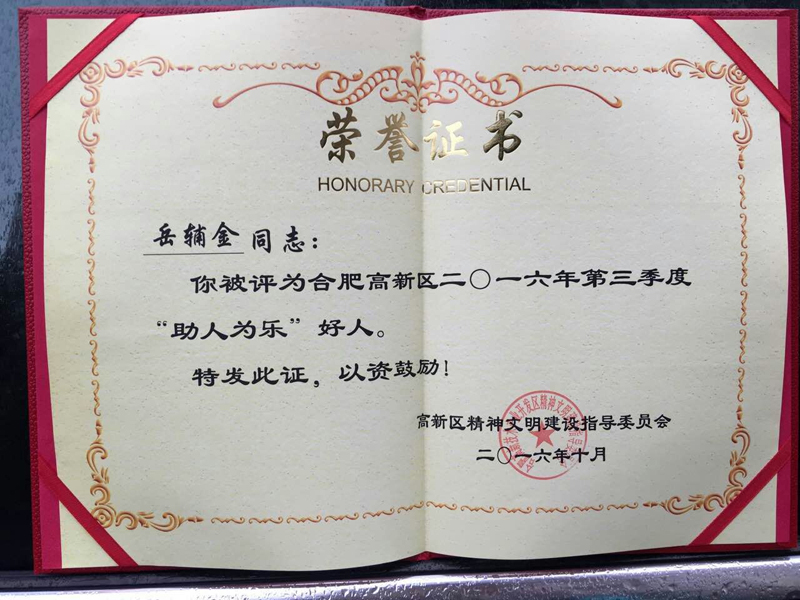 荣誉证书
HONORARY CREDENTIAL
岳辅金同志：
你被评为合肥高新区二〇一六年第三季度
“助人为乐”好人。
特发此证，以资鼓励！
高新区精神文明建设指导委员会
二〇一六年十月